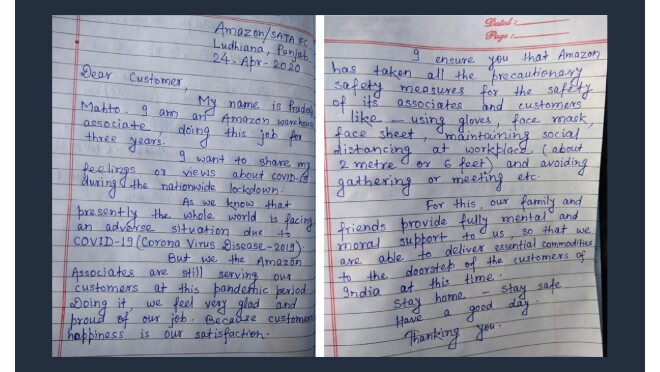 Amazon/SATA FC
Ludhiana, Punjab
24-Apr-2020
Dear Customer,
My name is Pradeep
Mahto. I am an Amazon warehouse
associate, doing this job for
three years.
I want to share my
feelings or views about COVID-19
during the nationwide lockdown.
As we know that
presently the whole world is facing
an adverse situation due to
COVID-19 (Corona Virus Disease-2019)
But we the Amazon
Associates are still serving our
customers at this pandemic period.
Doing it, we feel very glad and
proud of our job. Because customers
happiness is our satisfaction.
Dated :
Page :
I ensure you that Amazon
has taken all the precautionary
safety measures for the safety
of its associates and customers
like - using gloves, face mask,
face sheet, maintaining social
distancing at workplace (about
2 metre or 6 feet) and avoiding
gathering or meeting etc.
For this, our family and
friends provide fully mental and
moral support to us, so that we
are able to deliver essential commodities
to the doorstep of the customers of
India at this time.
Stay home - stay safe
Have a good day.
Thanking you.